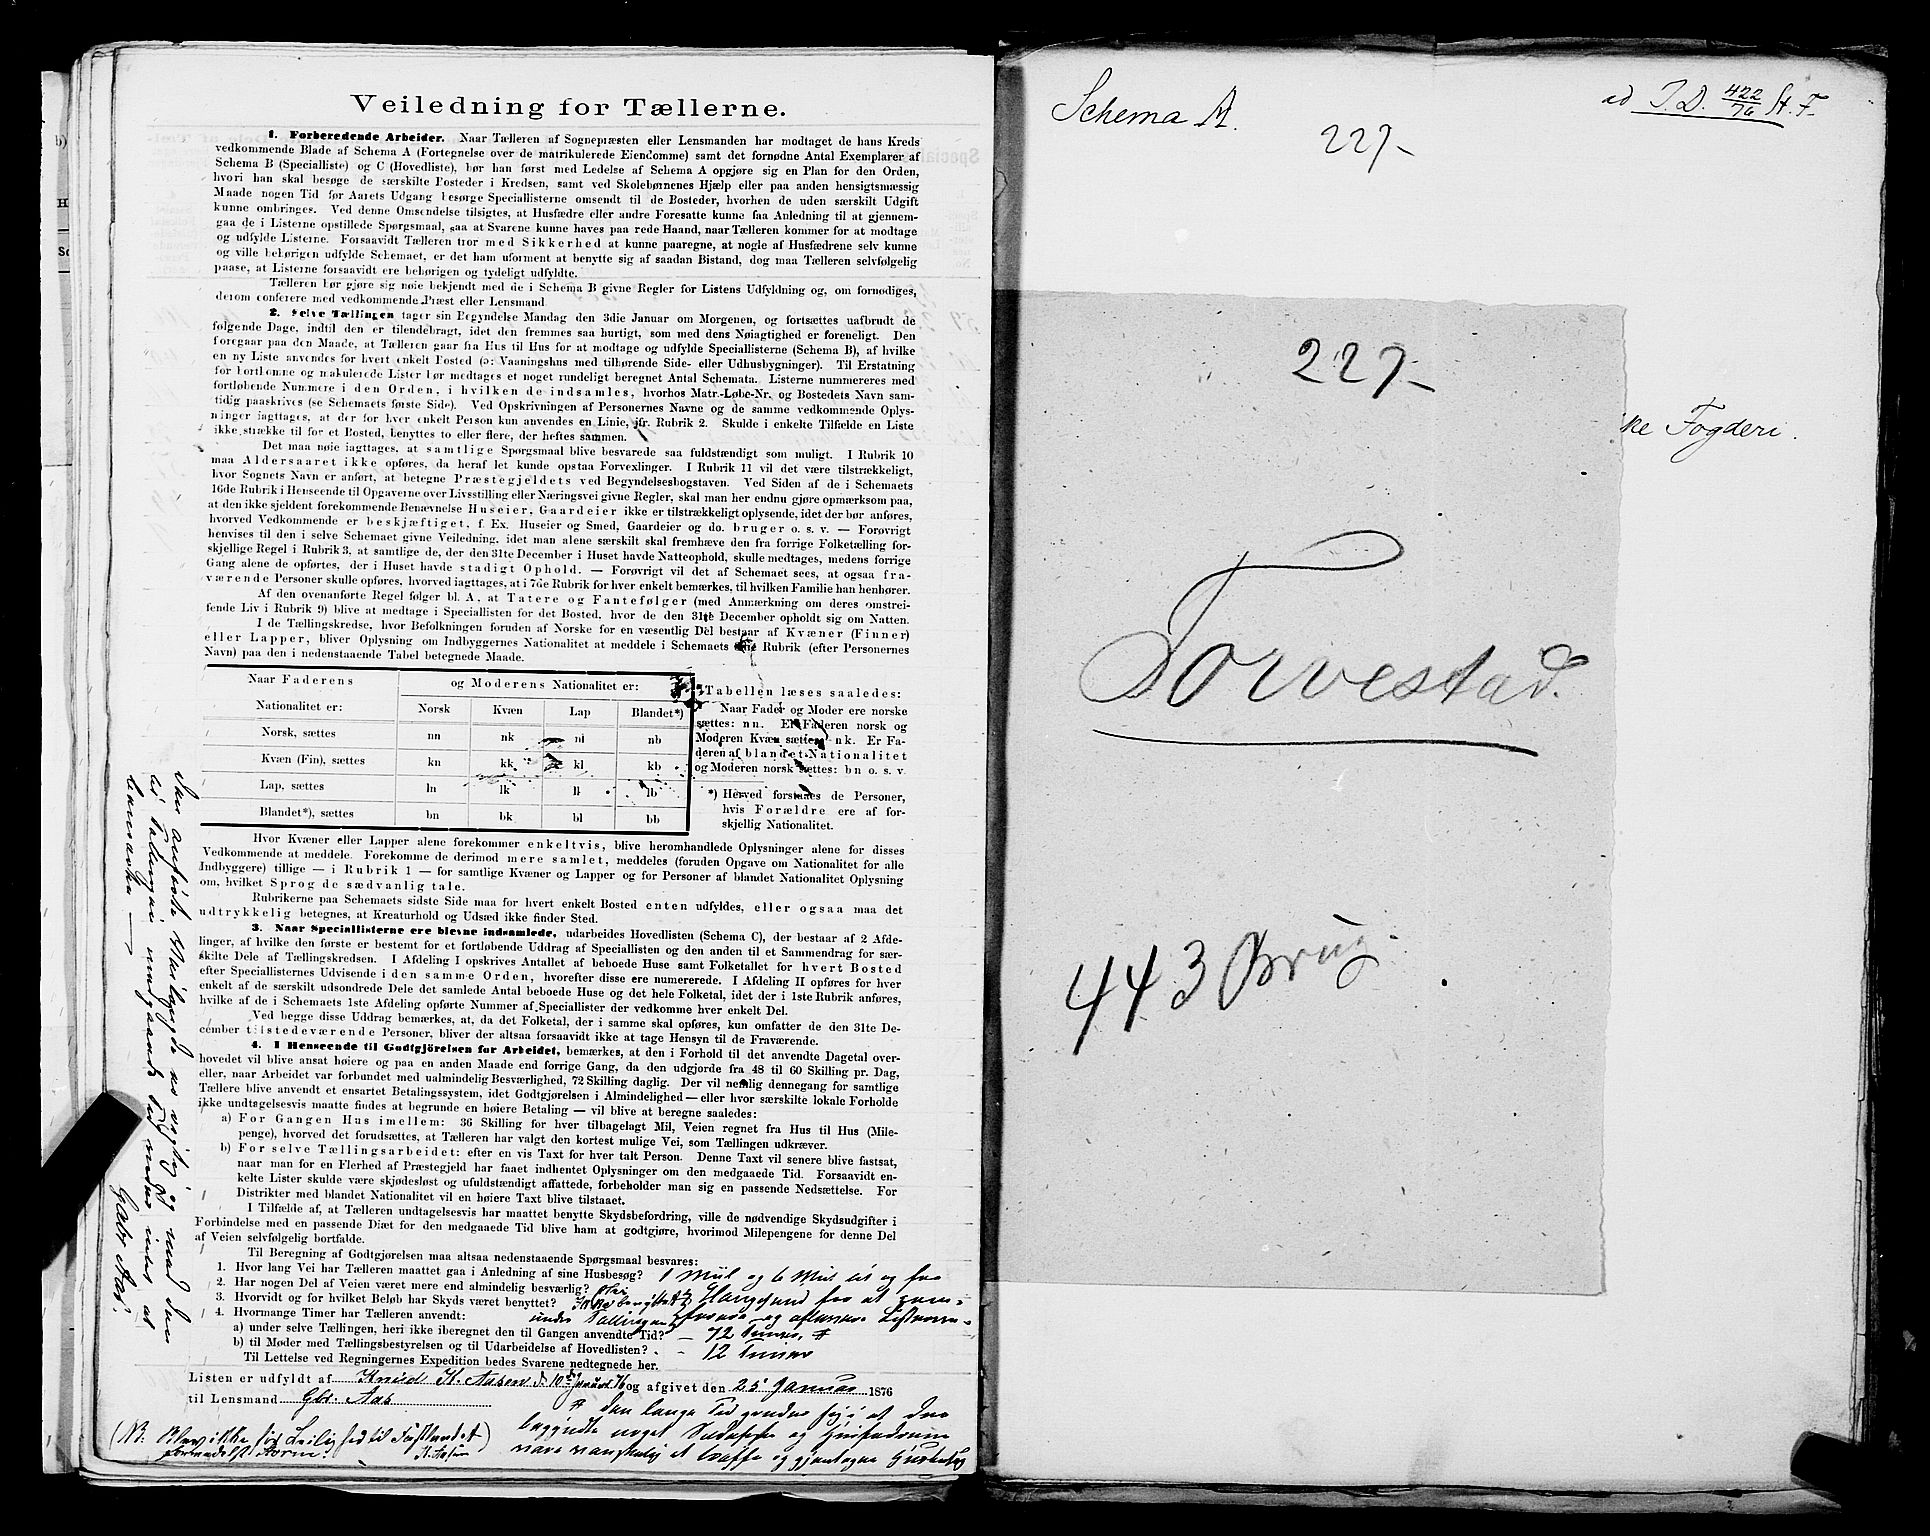 Veiledning for Tællerne.
1. Forberedende Arbeider. Naar Tælleren af Sognepræsten eller Lensmanden har modtaget de hans Kreds
vedkommende Blade af Schema A (Fortegnelse over de matrikulerede Eiendomme) samt det fornødne Antal Exemplarer af
Schema B (Specialliste) og C (Hovedliste), bør han først med Ledelse af Schema A opgjøre sig en Plan for den Orden,
hvori han skal besøge de særskilte Bosteder i Kredsen, samt ved Skolebørnenes Hjælp eller paa anden hensigtsmæssig
Maade nogen Tid før Aarets Udgang besørge Speciallisterne omsendt til de Bosteder, hvorhen de uden særskilt Udgift
kunne ombringes. Ved denne Omsendelse tilsigtes, at Husfædre eller andre Foresatte kunne faa Anledning til at gjennem-
gaa de i Listerne opstillede Spørgsmaal, saa at Svarene kunne haves paa rede Haand, naar Tælleren kommer for at modtage
og udfylde Listerne. Forsaavidt Tælleren tror med Sikkerhed at kunne paaregne, at nogle af Husfædrene selv kunne
og ville behørigen udfylde Schemaet, er det ham uforment at benytte sig af saadan Bistand, dog maa Tælleren selvfølgelig
paase, at Listerne forsaavidt ere behørigen og tydeligt udfyldte.
Tælleren bør gjøre sig nøie bekjendt med de i Schema B givne Regler for Listens Udfyldning og, om fornødiges,
derom conferere med vedkommende Præst eller Lensmand
2. Selve Tællingen tager sin Begyndelse Mandag den 3die Januar om Morgenen, og fortsættes uafbrudt de
følgende Dage, indtil den er tilendebragt, idet den fremmes saa hurtigt, som med dens Nøiagtighed er foreneligt. Den
foregaar paa den Maade, at Tælleren gaar fra Hus til Hus for at modtage og udfylde Speciallisterne (Schema B), af hvilke
en ny Liste anvendes for hvert enkelt Bosted (ɔ: Vaaningshus med tilhørende Side- eller Udhusbygninger). Til Erstatning
for bortkomne og makulerede Lister bør medtages et noget rundeligt beregnet Antal Schemata. Listerne nummereres med
fortløbende Nummere i den Orden, i hvilken de indsamles, hvorhos Matr.-Løbe-Nr. og Bostedets Navn sam-
tidig paaskrives (se Schemaets første Side). Ved Opskrivningen af Personernes Navne og de samme vedkommende Oplys-
ninger iagttages, at der for hver enkelt Person kun anvendes en Linie, jfr. Rubrik 2. Skulde i enkelte Tilfælde en Liste
ikke strække til for et Bosted, benyttes to eller flere, der heftes sammen.
Det maa nøie iagttages, at samtlige Spørgsmaal blive besvarede saa fuldstændigt som muligt. I Rubrik 10
maa Aldersaaret ikke opføres, da heraf let kunde opstaa Forvexlinger. I Rubrik 11 vil det være tilstrækkeligt,
hvor Sognets Navn er anført, at betegne Præstegjeldets ved Begyndelsesbogstaven. Ved Siden af de i Schemaets
16de Rubrik i Henseende til Opgaverne over Livsstilling eller Næringsvei givne Regler, skal man her endnu gjøre opmærksom paa,
at den ikke sjeldent forekommende Benævnelse Huseier, Gaardeier ikke er tilstrækkeligt oplysende, idet der bør anføres,
hvorved Vedkommende er beskjæftiget, f. Ex. Huseier og Smed, Gaardeier og do. bruger o. s. v. — Forøvrigt
henvises til den i selve Schemaet givne Veiledning, idet man alene særskilt skal fremhæve den fra forrige Folketælling for-
skjellige Regel i Rubrik 3, at samtlige de, der den 31te December i Huset havde Natteophold, skulle medtages, medens forrige
Gang alene de opførtes, der i Huset havde stadigt Ophold. — Forøvrigt vil det af Schemaet sees, at ogsaa fra-
værende Personer skulle opføres, hvorved iagttages, at i 7de Rubrik for hver enkelt bemærkes, til hvilken Familie han henhører.
Af den ovenanførte Regel følger bl. A., at Tatere og Fantefølger (med Anmærkning om deres omstrei-
fende Liv i Rubrik 9) blive at medtage i Speciallisten for det Bosted, hvor de den 31te December opholdt sig om Natten.
I de Tællingskredse, hvor Befolkningen foruden af Norske for en væsentlig Del bestaar af Kvæner (Finner)
eller Lapper, bliver Oplysning om Indbyggernes Nationalitet at meddele i Schemaets Rubrik (efter Personernes
Navn) paa den i nedenstaaende Tabel betegnede Maade.
Naar Faderens og Moderens Nationalitet er:
Nationalitet er: Norsk Kvæn Lap Blandet*)
Norsk, sættes nn nk nl nb
Kvæn (Fin), sættes kn kk kl kb
Lap, sættes ln lk ll lb
Blandet*), sættes bn bk bl bb
Tabellen læses saaledes:
Naar Fader og Moder ere norske
sættes: nn. Er Faderen norsk og
Moderen Kvæn sættes: nk. Er Fa-
deren af blandet Nationalitet
og Moderen norsk sættes: bn o. s. v.
*) Herved forstaaes de Personer,
hvis Forældre ere af for-
skjellig Nationalitet.
Hvor Kvæner eller Lapper alene forekommer enkeltvis, blive heromhandlede Oplysninger alene for disses
Vedkommende at meddele. Forekomme de derimod mere samlet, meddeles (foruden Opgave om Nationalitet for alle
Indbyggere) tillige — i Rubrik 1 — for samtlige Kvæner og Lapper og for Personer af blandet Nationalitet Oplysning
om, hvilket Sprog de sædvanlig tale.
Rubrikerne paa Schemaets sidste Side maa for hvert enkelt Bosted enten udfyldes, eller ogsaa maa det
udtrykkelig betegnes, at Kreaturhold og Udsæd ikke finder Sted.
3. Naar Speciallisterne ere blevne indsamlede, udarbeides Hovedlisten (Schema C), der bestaar af 2 Afde-
linger, af hvilke den første er bestemt for et fortløbende Uddrag af Speciallisten og den anden til et Sammendrag for sær-
skilte Dele af Tællingskredsen. I Afdeling I opskrives Antallet af beboede Huse samt Folketallet for hvert Bosted
efter Speciallisternes Udvisende i den samme Orden, hvorefter disse ere numererede. I Afdeling II opføres for hver
enkelt af de særskilt udsondrede Dele det samlede Antal beboede Huse og det hele Folketal, idet der i 1ste Rubrik anføres,
hvilke af de i Schemaets 1ste Afdeling opførte Nummer af Speciallister der vedkomme hver enkelt Del.
Ved begge disse Uddrag bemærkes, at, da det Folketal, der i samme skal opføres, kun omfatter de den 31te De-
cember tilstedeværende Personer, bliver der altsaa forsaavidt ikke at tage Hensyn til de Fraværende.
4. I Henseende til Godtgjörelsen for Arbeidet, bemærkes, at den i Forhold til det anvendte Dagetal over-
hovedet vil blive ansat høiere og paa en anden Maade end forrige Gang, da den udgjorde fra 48 til 60 Skilling pr. Dag,
eller, naar Arbeidet var forbundet med ualmindelig Besværlighed, 72 Skilling daglig. Der vil nemlig dennegang for samtlige
Tællere blive anvendt et ensartet Betalingssystem, idet Godtgjørelsen i Almindelighed — eller hvor særskilte lokale Forholde
ikke undtagelsesvis maatte findes at begrunde en høiere Betaling — vil blive at beregne saaledes:
a) For Gangen Hus imellem: 36 Skilling for hver tilbagelagt Mil, Veien regnet fra Hus til Hus (Mile-
penge), hvorved det forudsættes, at Tælleren har valgt den kortest mulige Vei, som Tællingen udkræver.
b) For selve Tællingsarbeidet: efter en vis Taxt for hver talt Person. Denne Taxt vil senere blive fastsat,
naar man for en Flerhed af Præstegjeld har faaet indhentet Oplysninger om den medgaaede Tid. Forsaavidt en-
kelte Lister skulde være skjødesløst og ufuldstændigt affattede, forbeholder man sig en passende Nedsættelse. For
Distrikter med blandet Nationalitet vil en høiere Taxt blive tilstaaet.
I Tilfælde af, at Tælleren undtagelsesvis har maattet benytte Skydsbefordring, ville de nødvendige Skydsudgifter i
Forbindelse med en passende Diæt for den medgaaede Tid blive ham at godtgjøre, hvorimod Milepengene for denne Del
af Veien selvfølgelig bortfalde.
Til Beregning af Godtgjørelsen maa altsaa nedenstaaende Spørgsmaal besvares:
1. Hvor lang Vei har Tælleren maattet gaa i Anledning af sine Husbesøg? 1 Miil og 6 Mil ud og fra
2. Har nogen Del af Veien været mere end almindelig besværlig?
3. Hvorvidt og for hvilket Beløb har Skyds været benyttet? Ikke benyttet
4. Hvormange Timer har Tælleren anvendt:
a) under selve Tællingen, heri ikke iberegnet den til Gangen anvendte Tid? — 72 Timer #
b) til Møder med Tællingsbestyrelsen og til Udarbeidelse af Hovedlisten? - 12 Timer
Til Lettelse ved Regningernes Expedition bedes Svarene nedtegnede her.
Listen er udfyldt af Knud K. Aasen d. 10de Januar 76 og afgivet den 25 Januar 1876
til Lensmand Gbr. Aas
# den lange Tid
K. Aasen
Gabr Aas.
Schema A.
227-
ad J. D. 422/76 St. F.
227-
ke Fogderi.
Torvestad.
443 Brug.